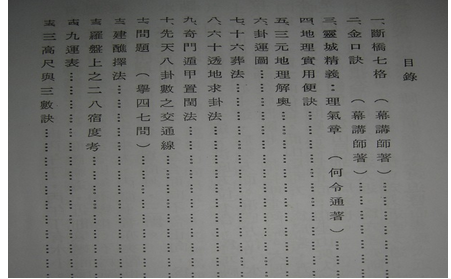 目錄
一、斷橋七格（幕講師著）
二、金口訣（幕講師著）
三、靈城精義：理氣章（何令通著）
四、地理實用便訣
五、三元地理解奧
六、卦運圖
七、十六葬法
八、六十透地求卦法
九、奇門遁甲置閏法
十、先天八卦數之交通線
十一、問題（舉四七問）
十二、建醮擇法
十三、羅盤上之二八宿度考
十四、九運表
十五、三高尺與三數訣